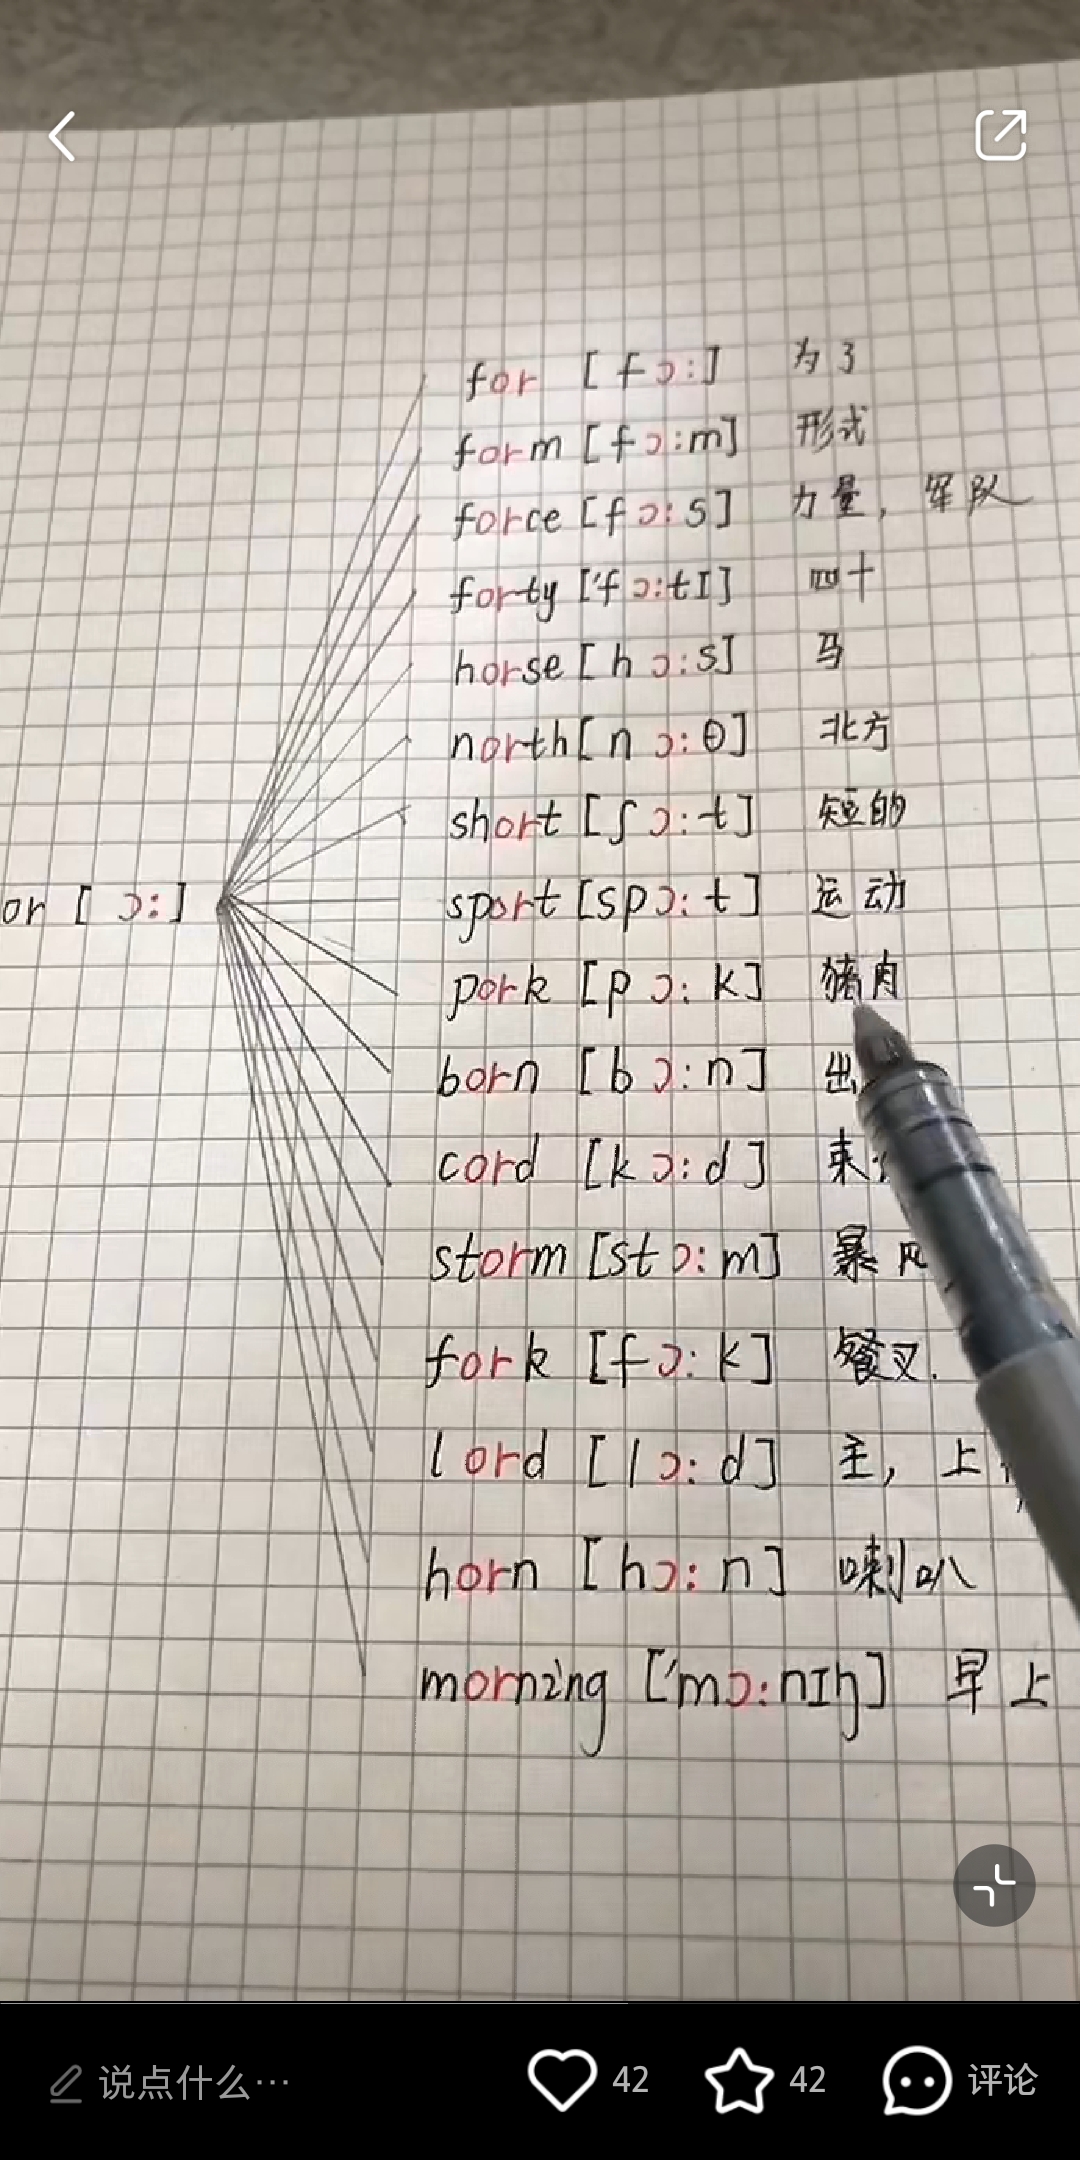 for [fɔ:] 为了
form [fɔ:m] 形式
force [fɔ:s] 力量，军队
forty ['fɔ:tI] 四十
horse [hɔ:s] 马
north [nɔ:θ] 北方
short [ʃɔ:t] 短的
or [ɔ:]
sport [spɔ:t] 运动
pork [pɔ:k] 猪肉
born [bɔ:n] 出
cord [kɔ:d] 束
storm [stɔ:m] 暴风
fork [fɔ:k] 餐叉.
lord [lɔ:d] 主，上
horn [hɔ:n] 喇叭
morning ['mɔ:nIŋ] 早上
说点什么… 42 42 评论